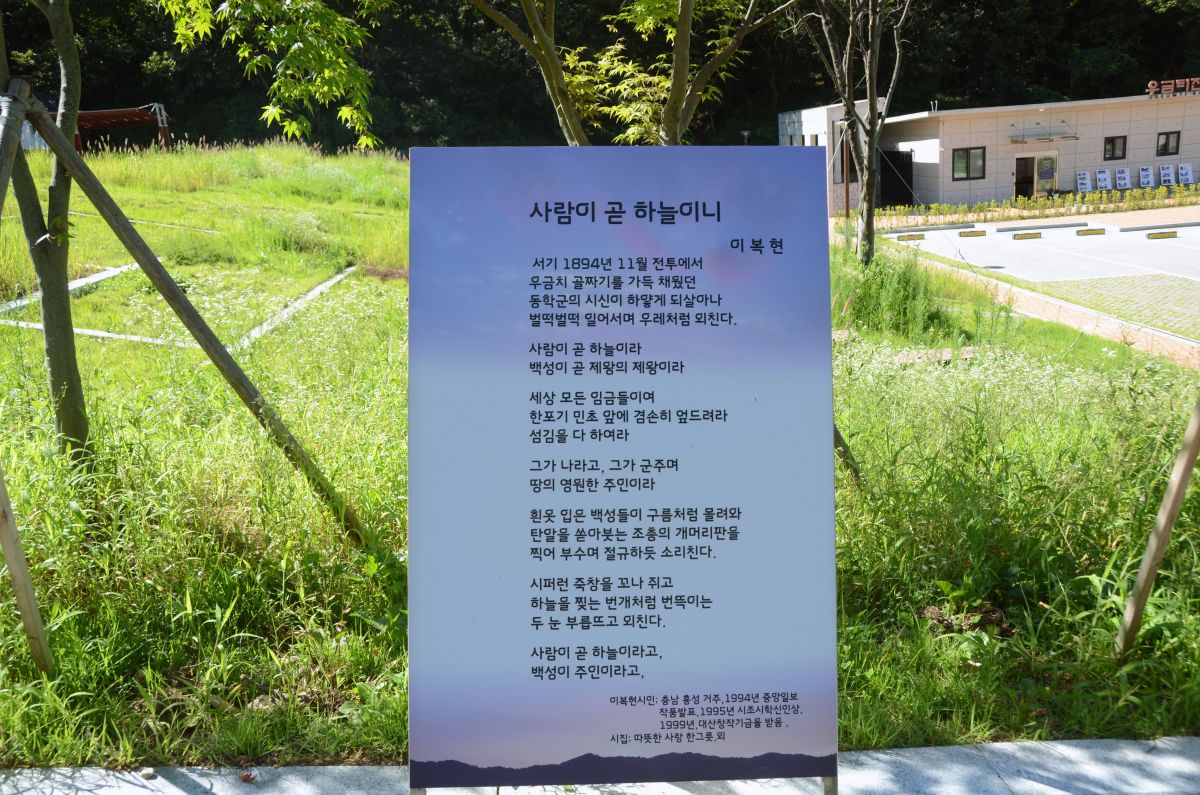 우금티전
사람이 곧 하늘이니
이 복 현
서기 1894년 11월 전투에서
우금치 골짜기를 가득 채웠던
동학군의 시신이 하얗게 되살아나
벌떡벌떡 일어서며 우레처럼 외친다.
사람이 곧 하늘이라
백성이 곧 제왕의 제왕이라
세상 모든 임금들이여
한포기 민초 앞에 겸손히 엎드려라
섬김을 다 하여라
그가 나라고, 그가 군주며
땅의 영원한 주인이라
흰옷 입은 백성들이 구름처럼 몰려와
탄알을 쏟아붓는 조총의 개머리판을
찍어 부수며 절규하듯 소리친다.
시퍼런 죽창을 꼬나 쥐고
하늘을 찢는 번개처럼 번뜩이는
두 눈 부릅뜨고 외친다.
사람이 곧 하늘이라고,
백성이 주인이라고,
이복현시민: 충남 홍성 거주,1994년 중앙일보
작품발표,1995년 시조시학신인상,
1999년,대산창작기금을 받음 ,
시집: 따뜻한 사랑 한그릇,외